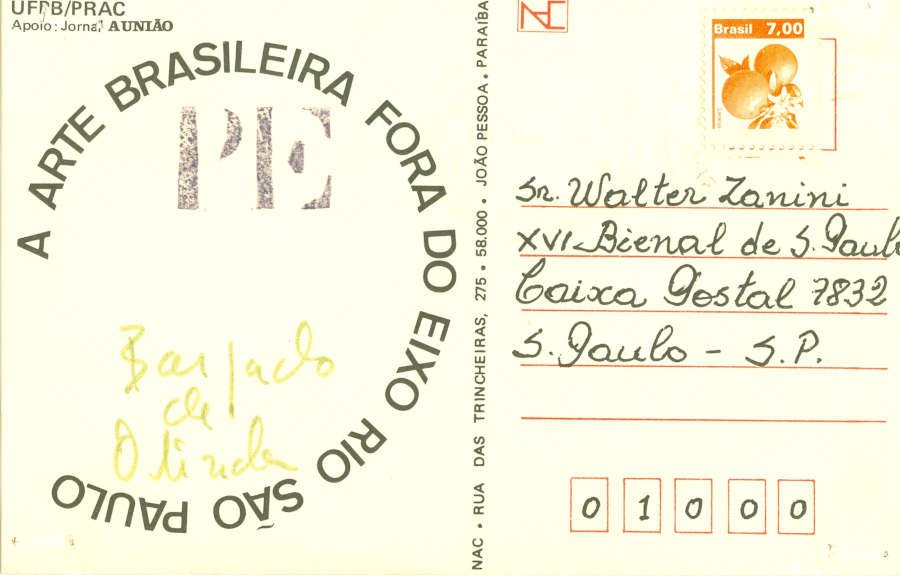 UFPB/PRAC
Apoio: Jornal A UNIÃO
A ARTE BRASILEIRA FORA DO EIXO RIO SÃO PAULO
PE
Bajado
de
Olinda
NAC • RUA DAS TRINCHEIRAS, 275 • 58.000 • JOÃO PESSOA • PARAÍBA
Brasil 7,00
Sr. Walter Zanini
XVI Bienal de S. Paulo
Caixa Postal 7832
S. Paulo - S.P.
0 1 0 0 0